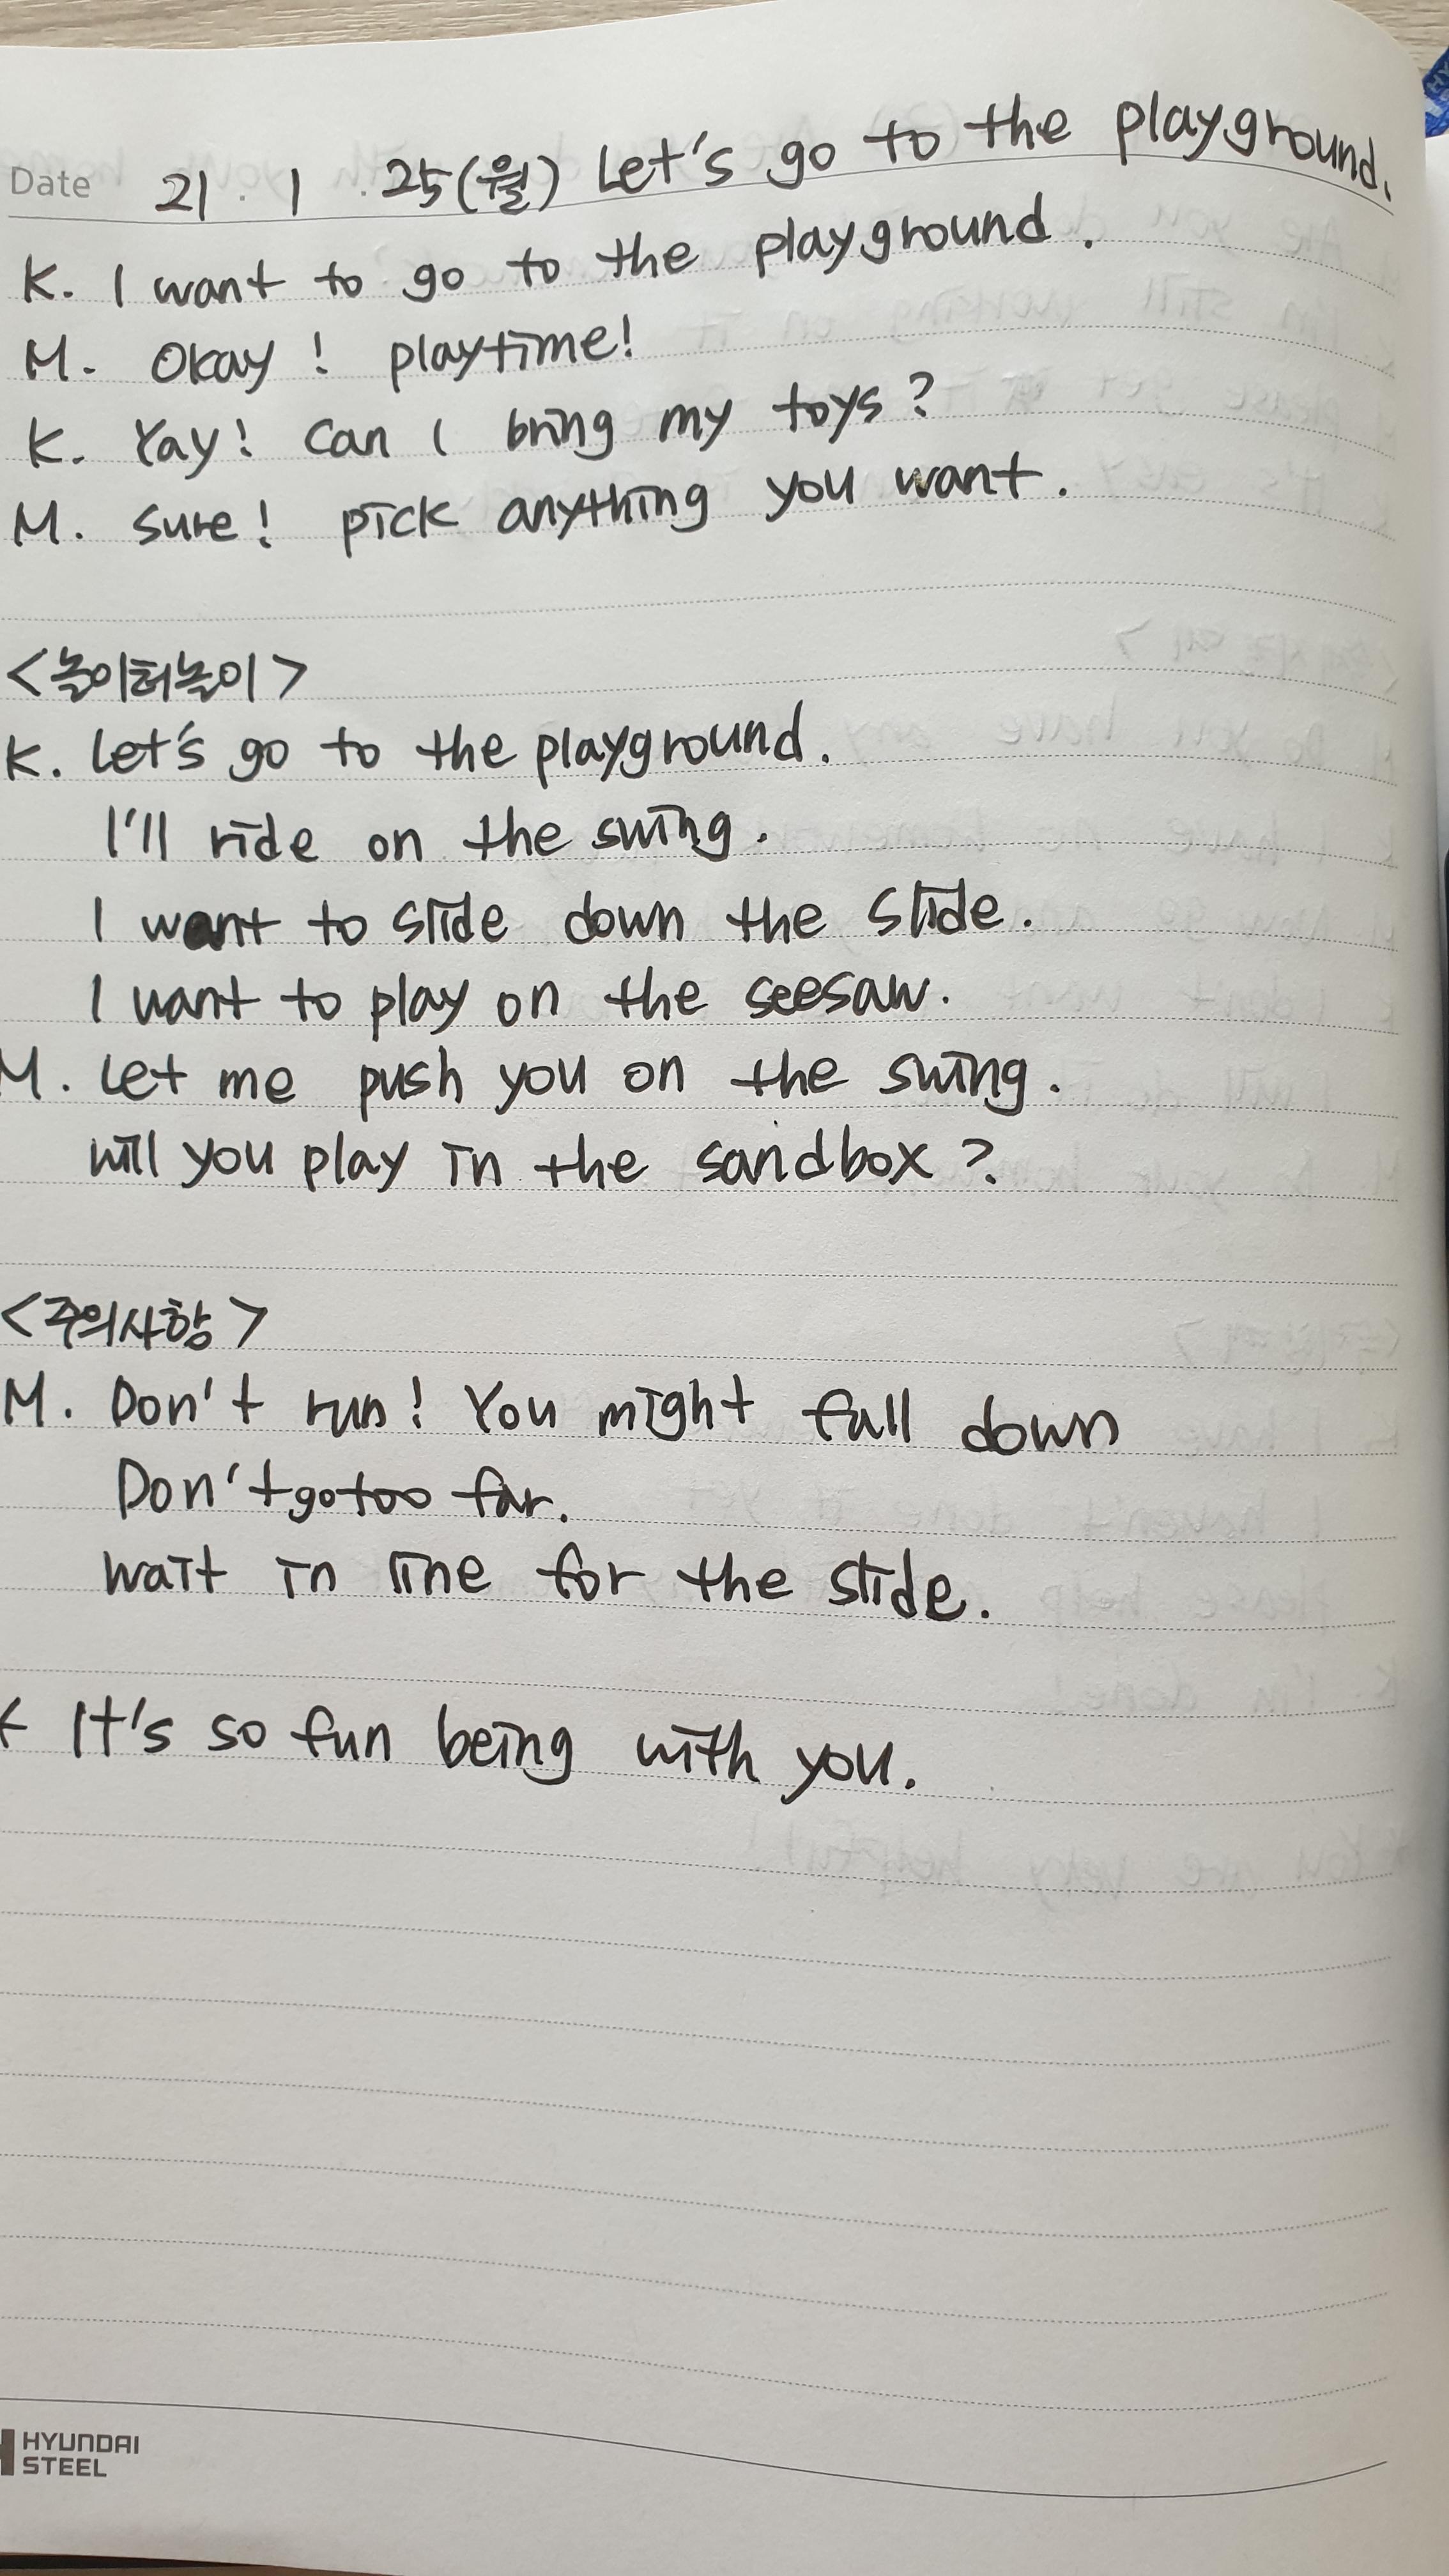 Date 21. 1. 25(월) Let's go to the playground.
K. I want to go to the playground.
M. Okay! playtime!
K. Yay! Can I bring my toys?
M. Sure! pick anything you want.
<놀이터놀이>
K. Let's go to the playground.
I'll ride on the swing.
I want to slide down the slide.
I want to play on the seesaw.
M. Let me push you on the swing.
will you play in the sandbox?
<주의사항>
M. Don't run! You might fall down
Don't go too far.
wait in line for the slide.
It's so fun being with you.
HYUNDAI
STEEL